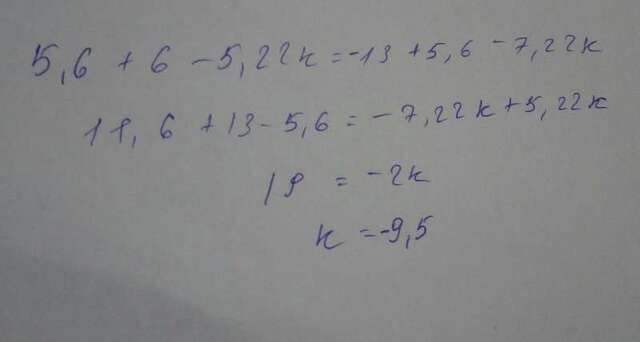 5,6 + 6 - 5,22к = -13 + 5,6 - 7,22к
11,6 + 13 - 5,6 = -7,22к + 5,22к
19 = -2к
к = -9,5